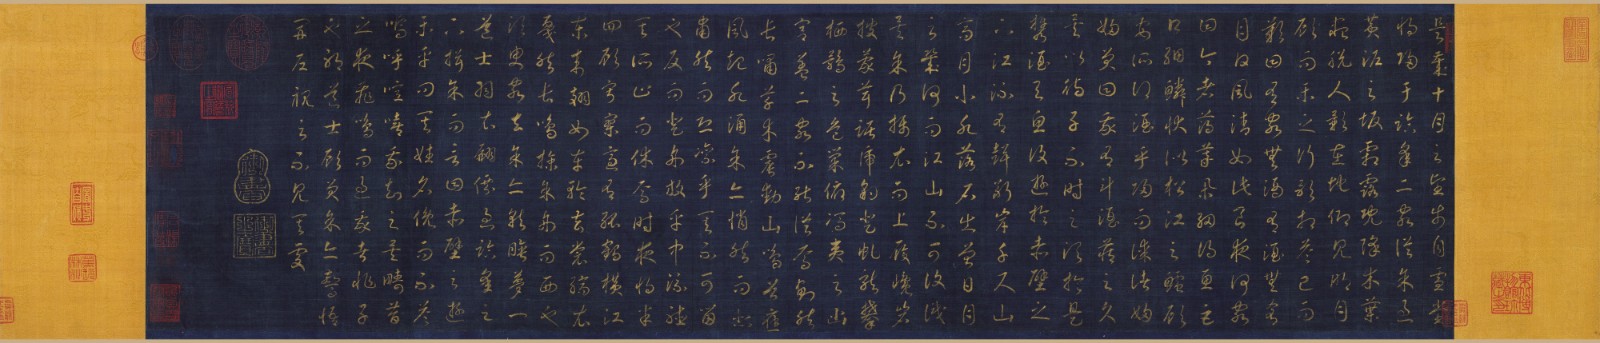 是歲十月之望步自雪堂
將歸于臨皋二客從余過
黃泥之坂霜露既降木葉
盡脫人影在地仰見明月
顧而樂之行歌相答已而
歎曰有客無酒有酒無肴
月白風清如此良夜何客
曰今者薄暮舉網得魚巨
口細鱗狀似松江之鱸顧
安所得酒乎歸而謀諸婦
婦曰我有斗酒藏之久
矣以待子不時之須於是
攜酒與魚復遊於赤壁之
下江流有聲斷岸千尺山
高月小水落石出曾日月
之幾何而江山不可復識
矣余乃攝衣而上履巉巖
披蒙茸踞虎豹登虬龍攀
栖鶻之危巢俯馮夷之幽
宮蓋二客不能從焉劃然
長嘯草木震動山鳴谷應
風起水涌余亦悄然而悲
肅然而恐凜乎其不可留
也反而登舟放乎中流聽
其所止而休焉時夜將半
四顧寂寥適有孤鶴橫江
東來翅如車輪玄裳縞衣
戛然長鳴掠余舟而西也
須臾客去余亦就睡夢一
道士羽衣翩僊過臨皋之
下揖余而言曰赤壁之遊
樂乎問其姓名俛而不答
嗚呼噫嘻我知之矣疇昔
之夜飛鳴而過我者非子
也耶道士顧笑余亦驚悟
開戶視之不見其處